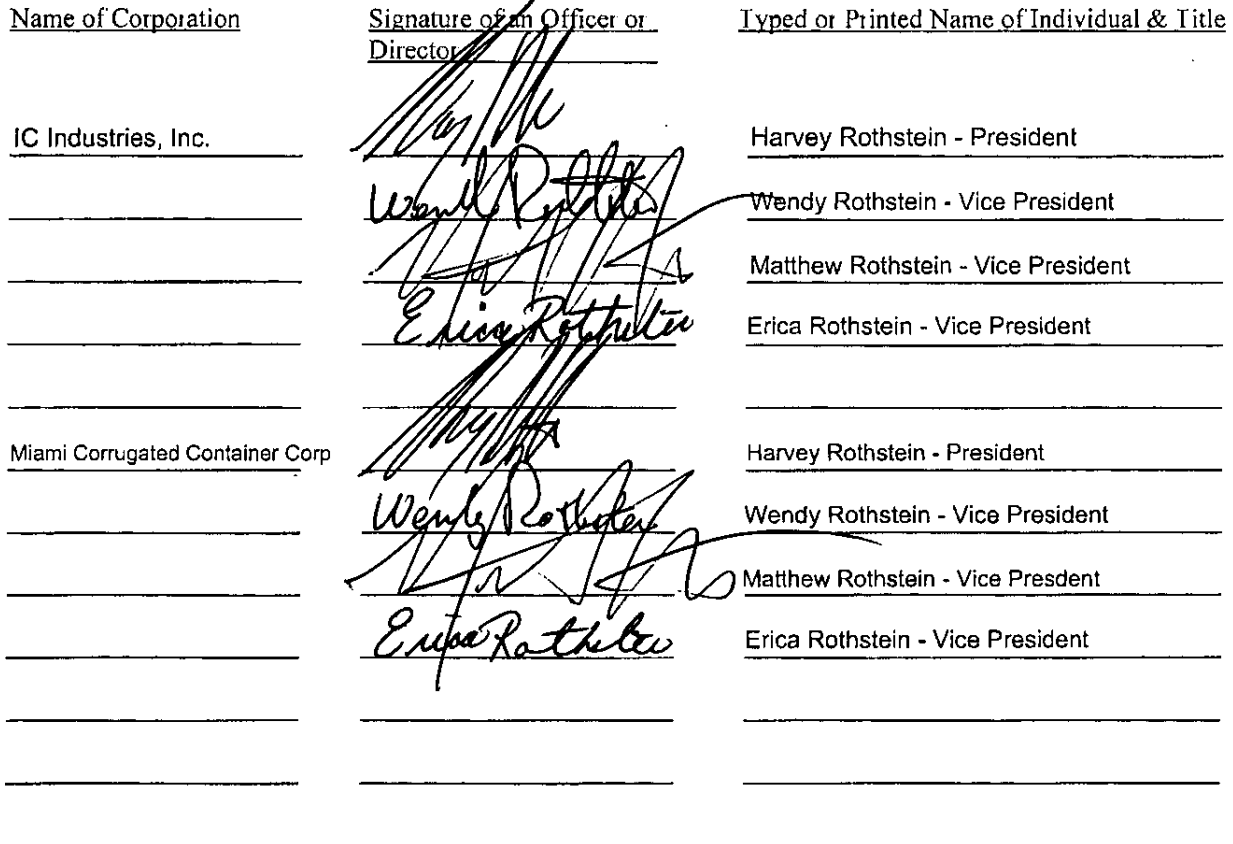 Name of Corporation Signature of an Officer or Typed or Printed Name of Individual & Title
Director
IC Industries, Inc. Harvey Rothstein - President
Wendy Rothstein Wendy Rothstein - Vice President
Matthew Rothstein - Vice President
Erica Rothstein Erica Rothstein - Vice President
Miami Corrugated Container Corp Harvey Rothstein - President
Wendy Rothstein Wendy Rothstein - Vice President
Matthew Rothstein - Vice Presdent
Erica Rothstein Erica Rothstein - Vice President